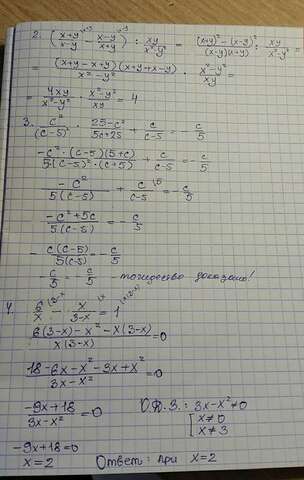 2. (x+y/x-y - x-y/x+y) : xy/x²-y² = (x+y)²-(x-y)²/(x-y)(x+y) : xy/x²-y² =
= (x+y-x+y)(x+y+x-y)/x²-y² · x²-y²/xy =
= 4xy/x²-y² · x²-y²/xy = 4
3. c²/(c-5)² · 25-c²/5c+25 + c/c-5 = -c/5
-c²·(c-5)(5+c)/5(c-5)²·(c+5) + c/c-5 = -c/5
-c²/5(c-5) + c/c-5 \5 = -c/5
-c²+5c/5(c-5) = -c/5
-c(c-5)/5(c-5) = -c/5
-c/5 = -c/5 - тождество доказано!
4. 6/x \3-x - x/3-x \x = 1 \x(3-x)
6(3-x)-x²-x(3-x)/x(3-x) = 0
18-6x-x²-3x+x²/3x-x² = 0
-9x+18/3x-x² = 0 О.Д.З.: 3x-x²≠0
[x≠0
x≠3
-9x+18=0
x=2 Ответ: при x=2